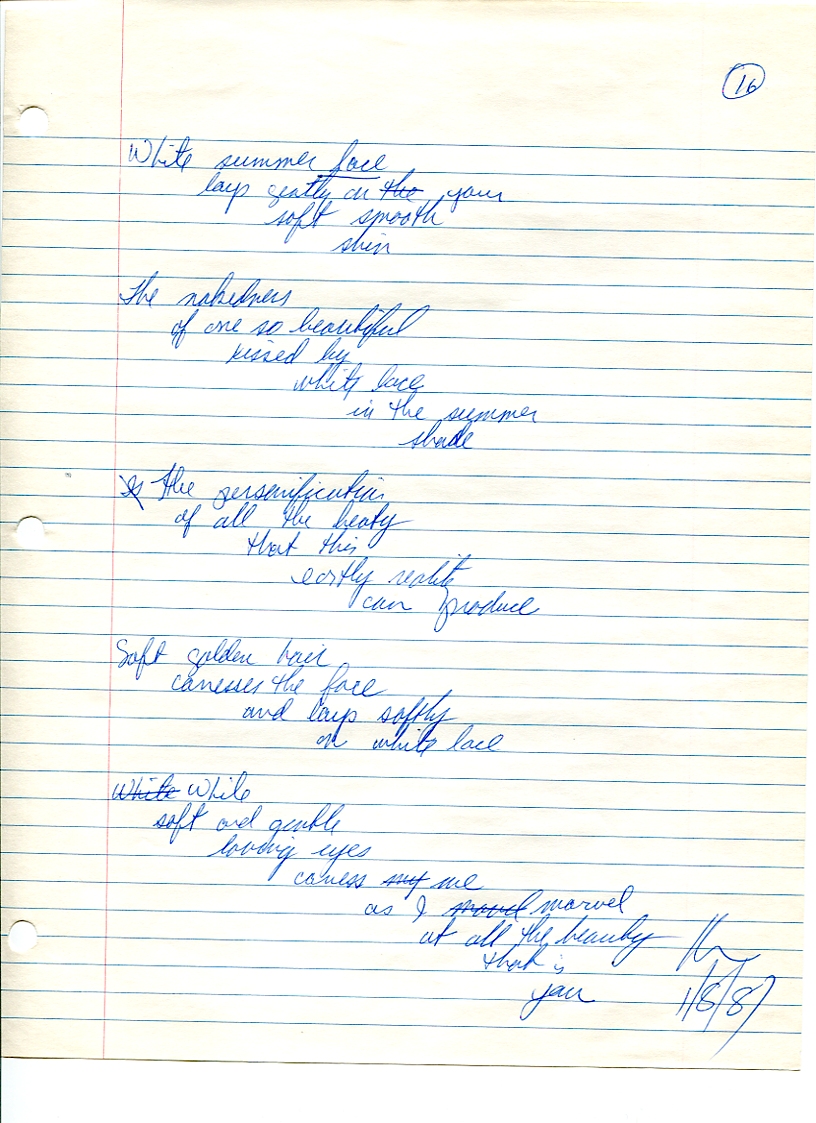 16
White summer lace
lays gently on the your
soft smooth
skin
The nakedness
of one so beautiful
kissed by
white lace
in the summer
shade
Is the personification
of all the beaty
that this
eartly reality
can produce
Soft golden hair
caresses the face
and lays softly
on white lace
White While
soft and gentle
loving eyes
caress my me
as I marvel
at all the beauty
that is
you
1/8/87